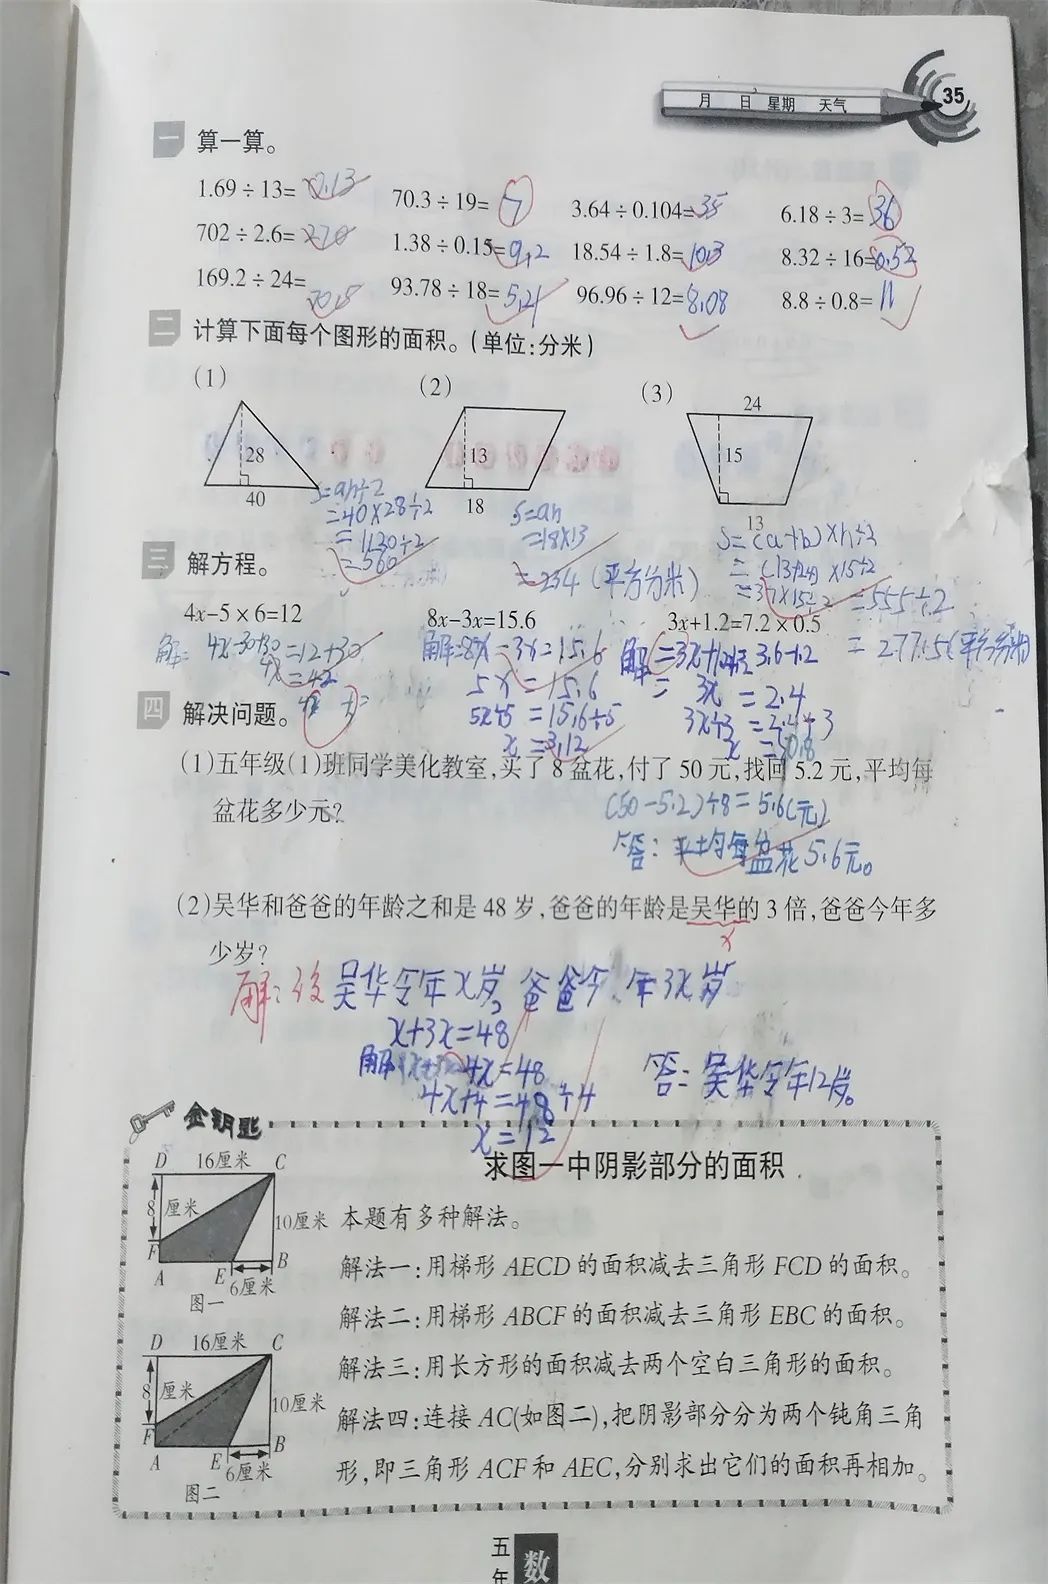 月 日 星期 天气
35
一 算一算。
1.69÷13=0.13 70.3÷19= 3.64÷0.104=35 6.18÷3=36
702÷2.6=270 1.38÷0.15=9.2 18.54÷1.8=10.3 8.32÷16=0.52
169.2÷24= 93.78÷18=5.21 96.96÷12=8.08 8.8÷0.8=11
二 计算下面每个图形的面积。(单位:分米)
(1) (2) (3)
24
28 13 15
40 18 13
S=ah÷2
=40×28÷2
=1120÷2
=560
S=ah
=18×13
=234(平方分米)
S=(a+b)×h÷2
=(13+24)×15÷2
=37×15÷2
=555÷2
=277.5(平方分米)
三 解方程。
4x-5×6=12 8x-3x=15.6 3x+1.2=7.2×0.5
解: 4x-30+30=12+30
4x=42
解:8x-3x=15.6
5x=15.6
5x÷5=15.6÷5
x=3.12
3x=2.4
3x÷3=2.4÷3
四 解决问题。
(1)五年级(1)班同学美化教室,买了8盆花,付了50元,找回5.2元,平均每
盆花多少元?
(50-5.2)÷8=5.6(元)
答:平均每盆花5.6元。
(2)吴华和爸爸的年龄之和是48岁,爸爸的年龄是吴华的3倍,爸爸今年多
少岁?
x
解:设吴华今年x岁,爸爸今年3x岁
x+3x=48
解 4x=48
4x÷4=48÷4
x=12
答:吴华今年12岁。
金钥匙
求图一中阴影部分的面积
D 16厘米 C
8厘米
10厘米
F
A E B
6厘米
图一
本题有多种解法。
解法一:用梯形AECD的面积减去三角形FCD的面积。
解法二:用梯形ABCF的面积减去三角形EBC的面积。
解法三:用长方形的面积减去两个空白三角形的面积。
解法四:连接AC(如图二),把阴影部分分为两个钝角三角
形,即三角形ACF和AEC,分别求出它们的面积再相加。
D 16厘米 C
8厘米
10厘米
F
A E B
6厘米
图二
五年
数